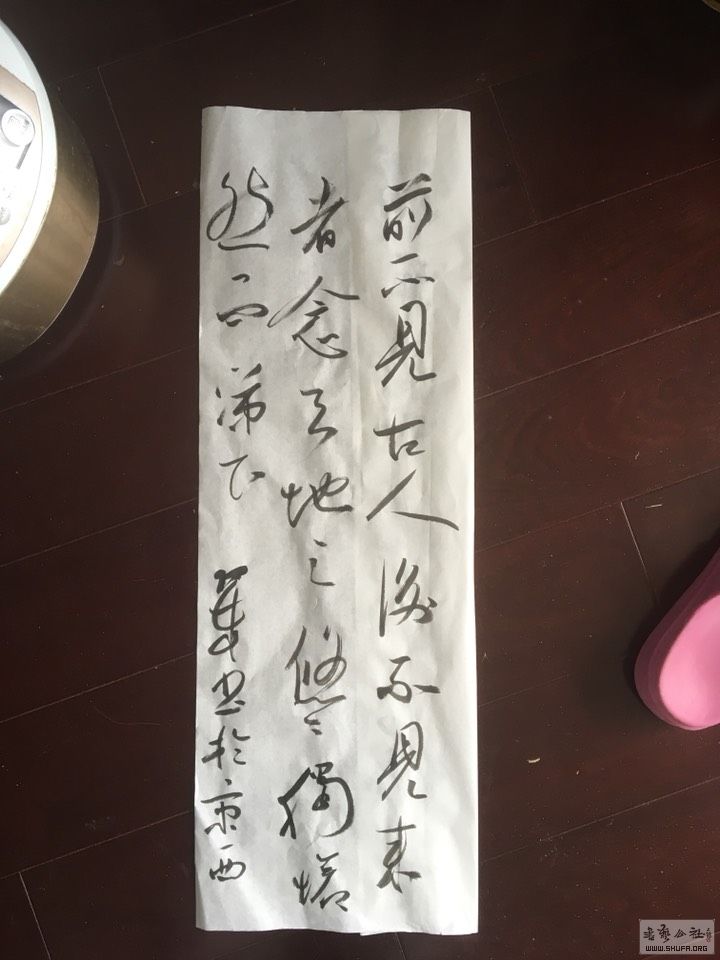 前不見古人後不見来
者念天地之悠々獨愴
然而涕下
书於京西
書藝公社
WWW.SHUFA.ORG